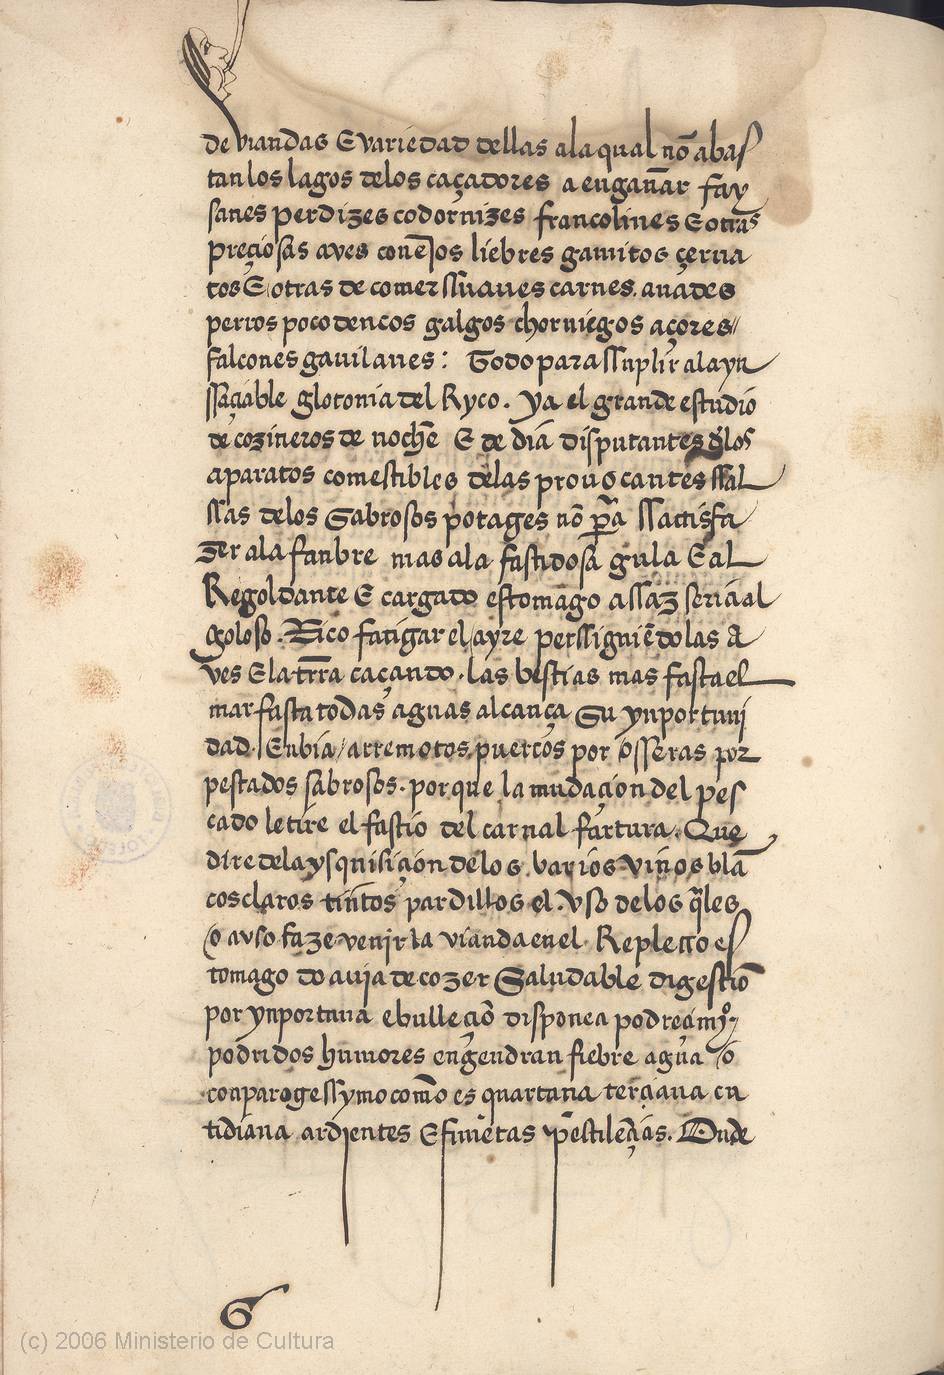 de viandas E variedad dellas ala qual nõ abas
tan los lagos delos caçadores a engañar fay
sanes perdizes codornizes francolines E otras
preçiosas aves coneios liebres gamitos çerva
tos E otras de comer ssuaues carnes. anades
perros pocodencos galgos chorniegos açores
falcones gauilanes: Todo para ssuplir ala yn
ssaçiable glotonia del Ryco. ya el grande estudio
de cozineros de noche E de dia disputantes dlos
aparatos comestibles delas prouocantes ssal
ssas delos Sabrosos potages nõ pa ssatisfa
zer ala fanbre mas ala fastidosa gula E al
Regoldante E cargado estomago assaz seria al
goloso. Rico fatigar el ayre perssiguiẽdo las a
ves E la trra caçando. las bestias mas fasta el
mar fasta todas aguas alcança Su ynportuni
dad. Enbia arremotos puertos por osseras por
pescados sabrosos. porque la mudaçion del pes
cado le tire el fastio del carnal fartura. Que
dire dela ysquisiçion delos varios vinos blã
cos claros tintos pardillos el. vso delos qles
o avso faze venir la vianda enel Repleto es
tomago do auja de cozer Saludable digestiõ
por ynportuna ebulleçiõ dispone a podreçimjo
podridos humores engendran fiebre agua o
conparogessymo commo es quartana terçiana cu
tidiana ardientes E fimeras pestilẽçias. Onde
6
(c) 2006 Ministerio de Cultura